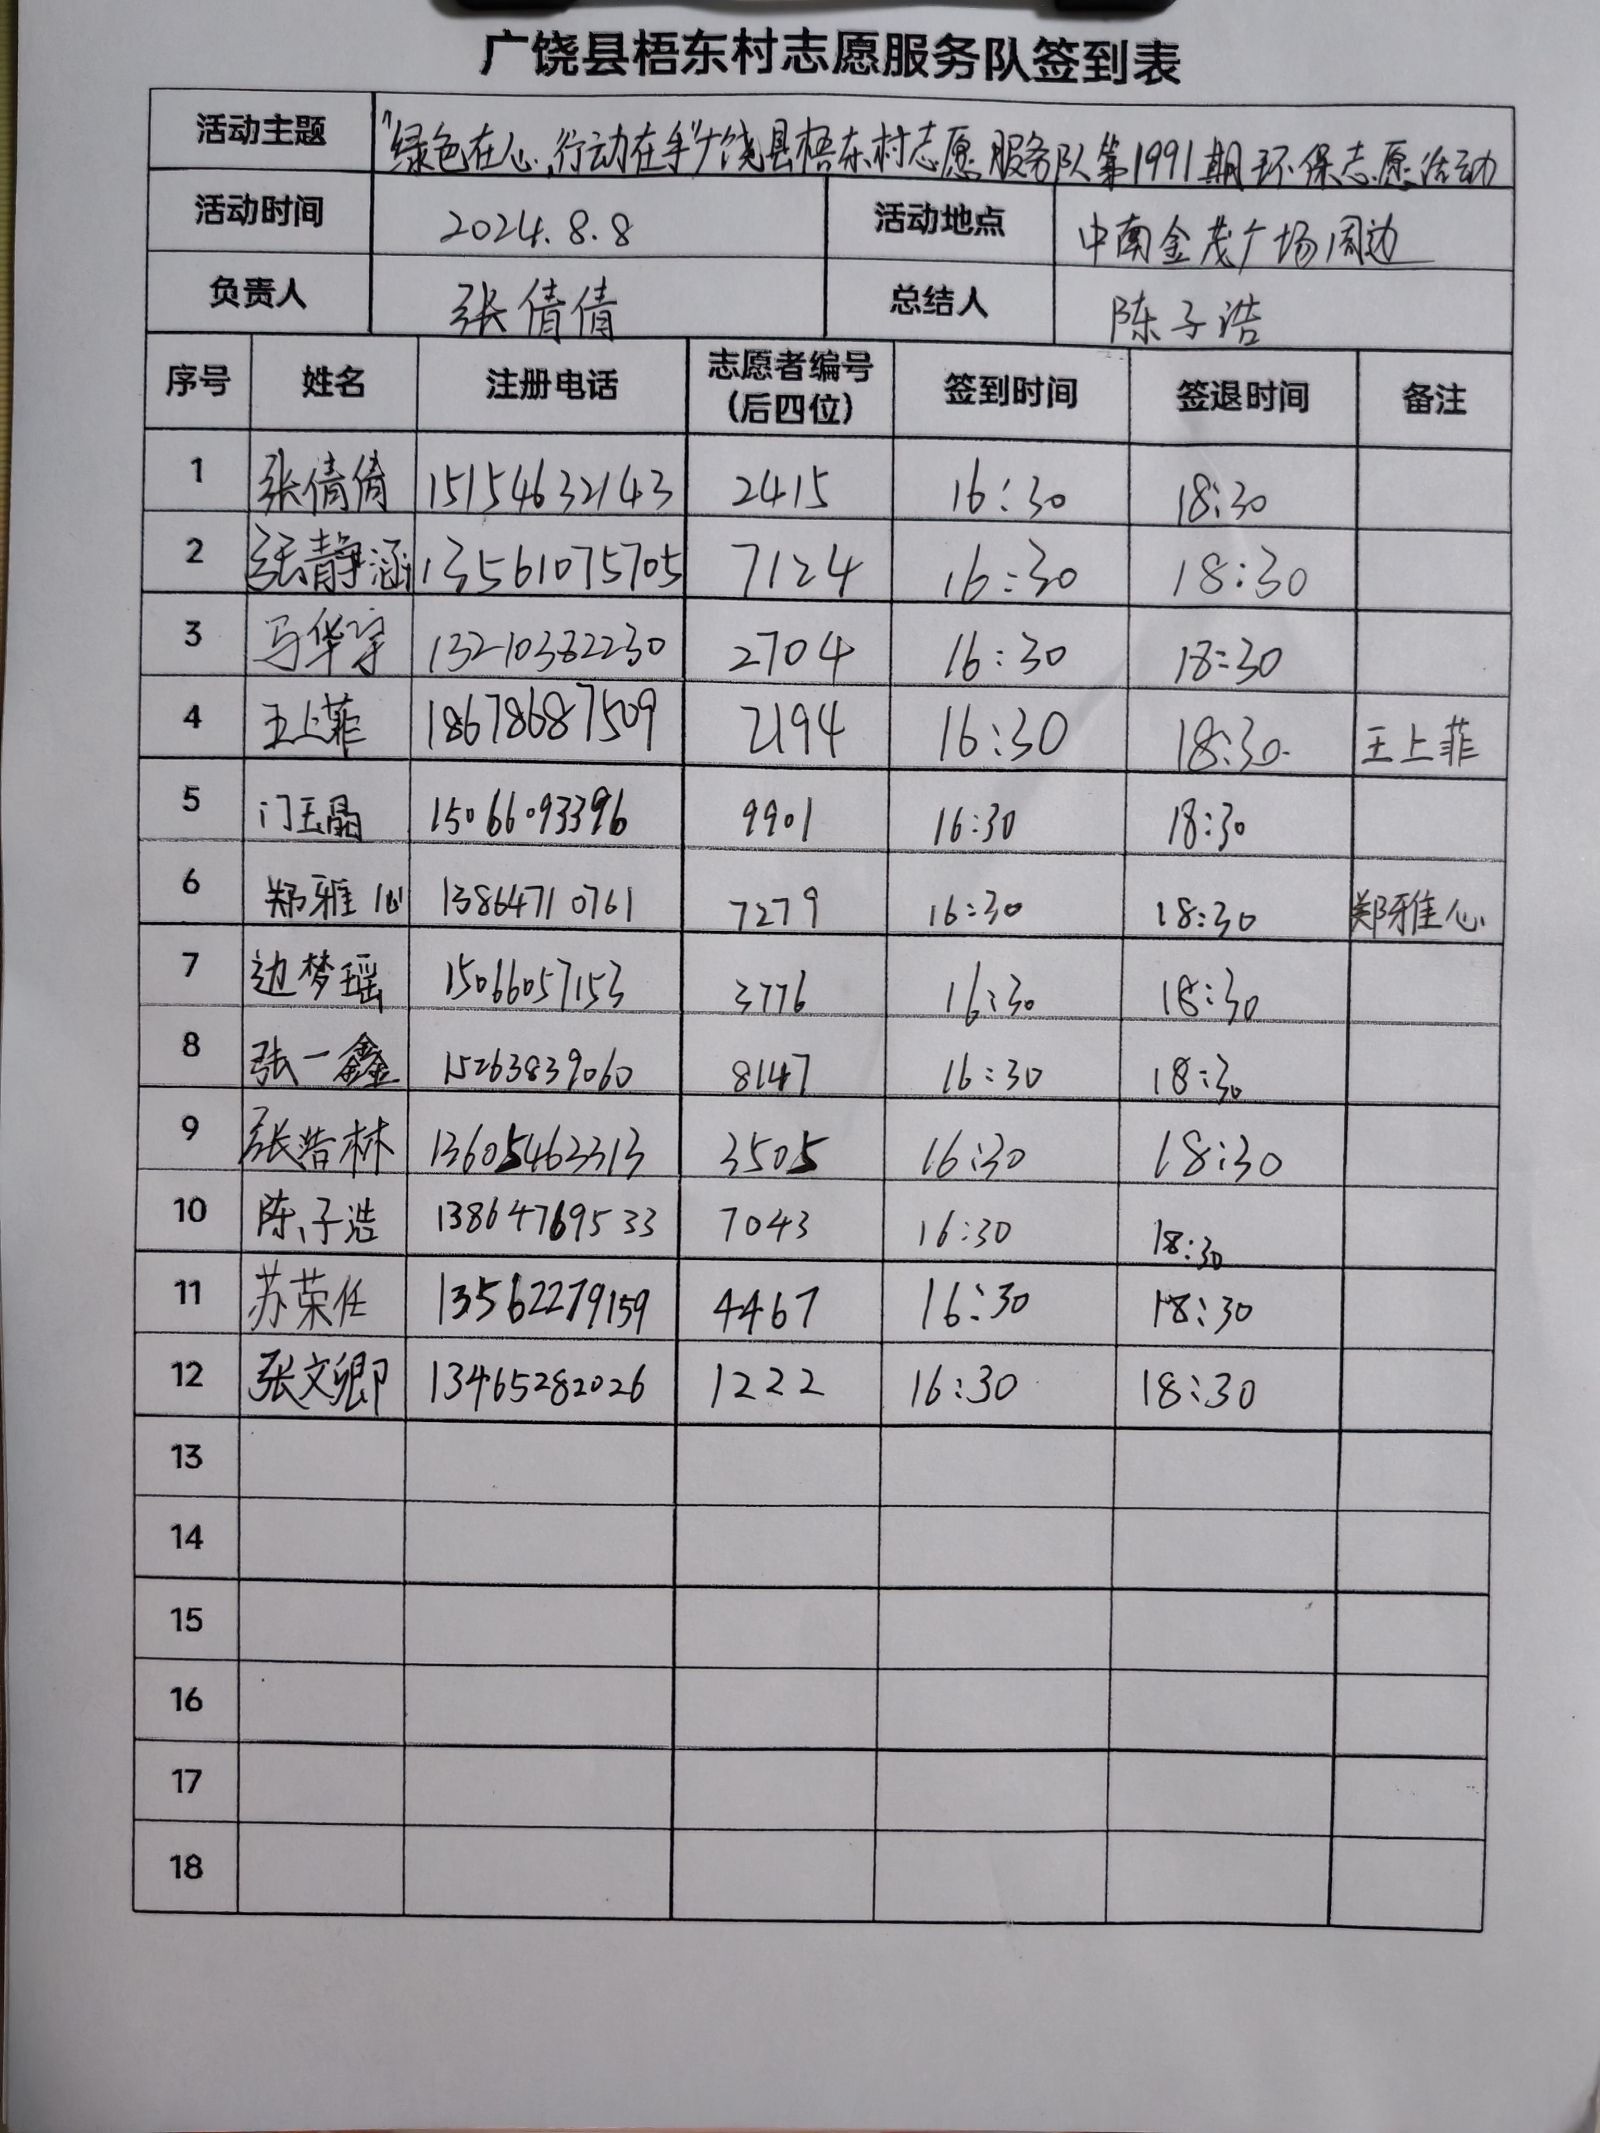 广饶县梧东村志愿服务队签到表
活动主题 "绿色在心,行动在手"广饶县梧东村志愿服务队第1991期环保志愿活动
活动时间 2024.8.8 活动地点 中南金茂广场周边
负责人 张倩倩 总结人 陈子浩
序号 姓名 注册电话 志愿者编号 (后四位) 签到时间 签退时间 备注
1 张倩倩 15154632143 2415 16:30 18:30
2 张静涵 13561075705 7124 16:30 18:30
3 马华宇 13210382230 2704 16:30 18:30
4 王上菲 18678687509 2194 16:30 18:30 王上菲
5 门玉晶 15066093396 9901 16:30 18:30
6 郑雅心 13864710761 7279 16:30 18:30 郑雅心
7 边梦瑶 15066057153 3776 16:30 18:30
8 张一鑫 15263839060 8147 16:30 18:30
9 张浩林 13605463313 3505 16:30 18:30
10 陈子浩 13864769533 7043 16:30 18:30
11 苏荣任 13562279159 4467 16:30 18:30
12 张文卿 13465282026 1222 16:30 18:30
13
14
15
16
17
18